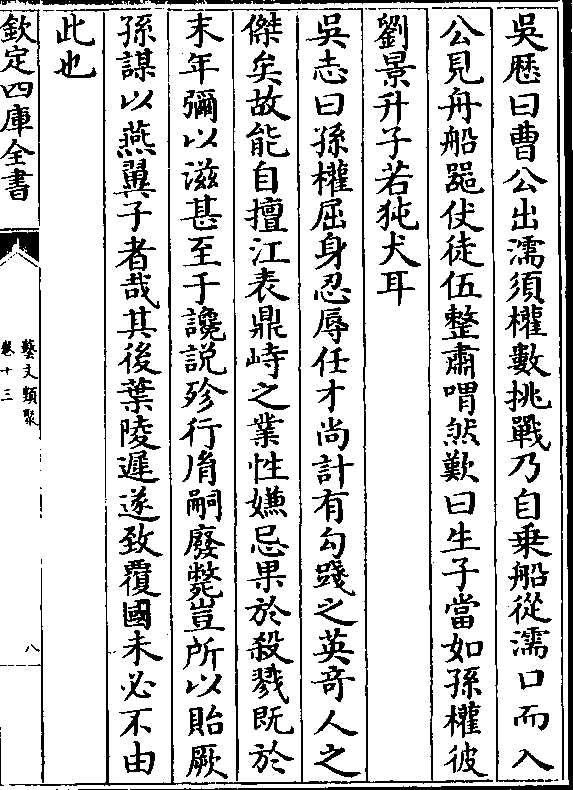 吳厯曰曹公出濡須權數挑戰乃自乗船從濡口而入
公見舟船噐仗徒伍整肅喟然歎曰生子當如孫權彼
劉景升子若㹠犬耳
吳志曰孫權屈身忍辱任才尚計有勾踐之英竒人之
傑矣故能自擅江表鼎峙之業性嫌忌果於殺戮既於
末年彌以滋甚至于讒説殄行𦙍嗣廢斃豈所以貽厥
孫謀以燕翼子者哉其後葉陵遲遂致覆國未必不由
此也
欽定四庫全書
藝文類聚
卷十三
八